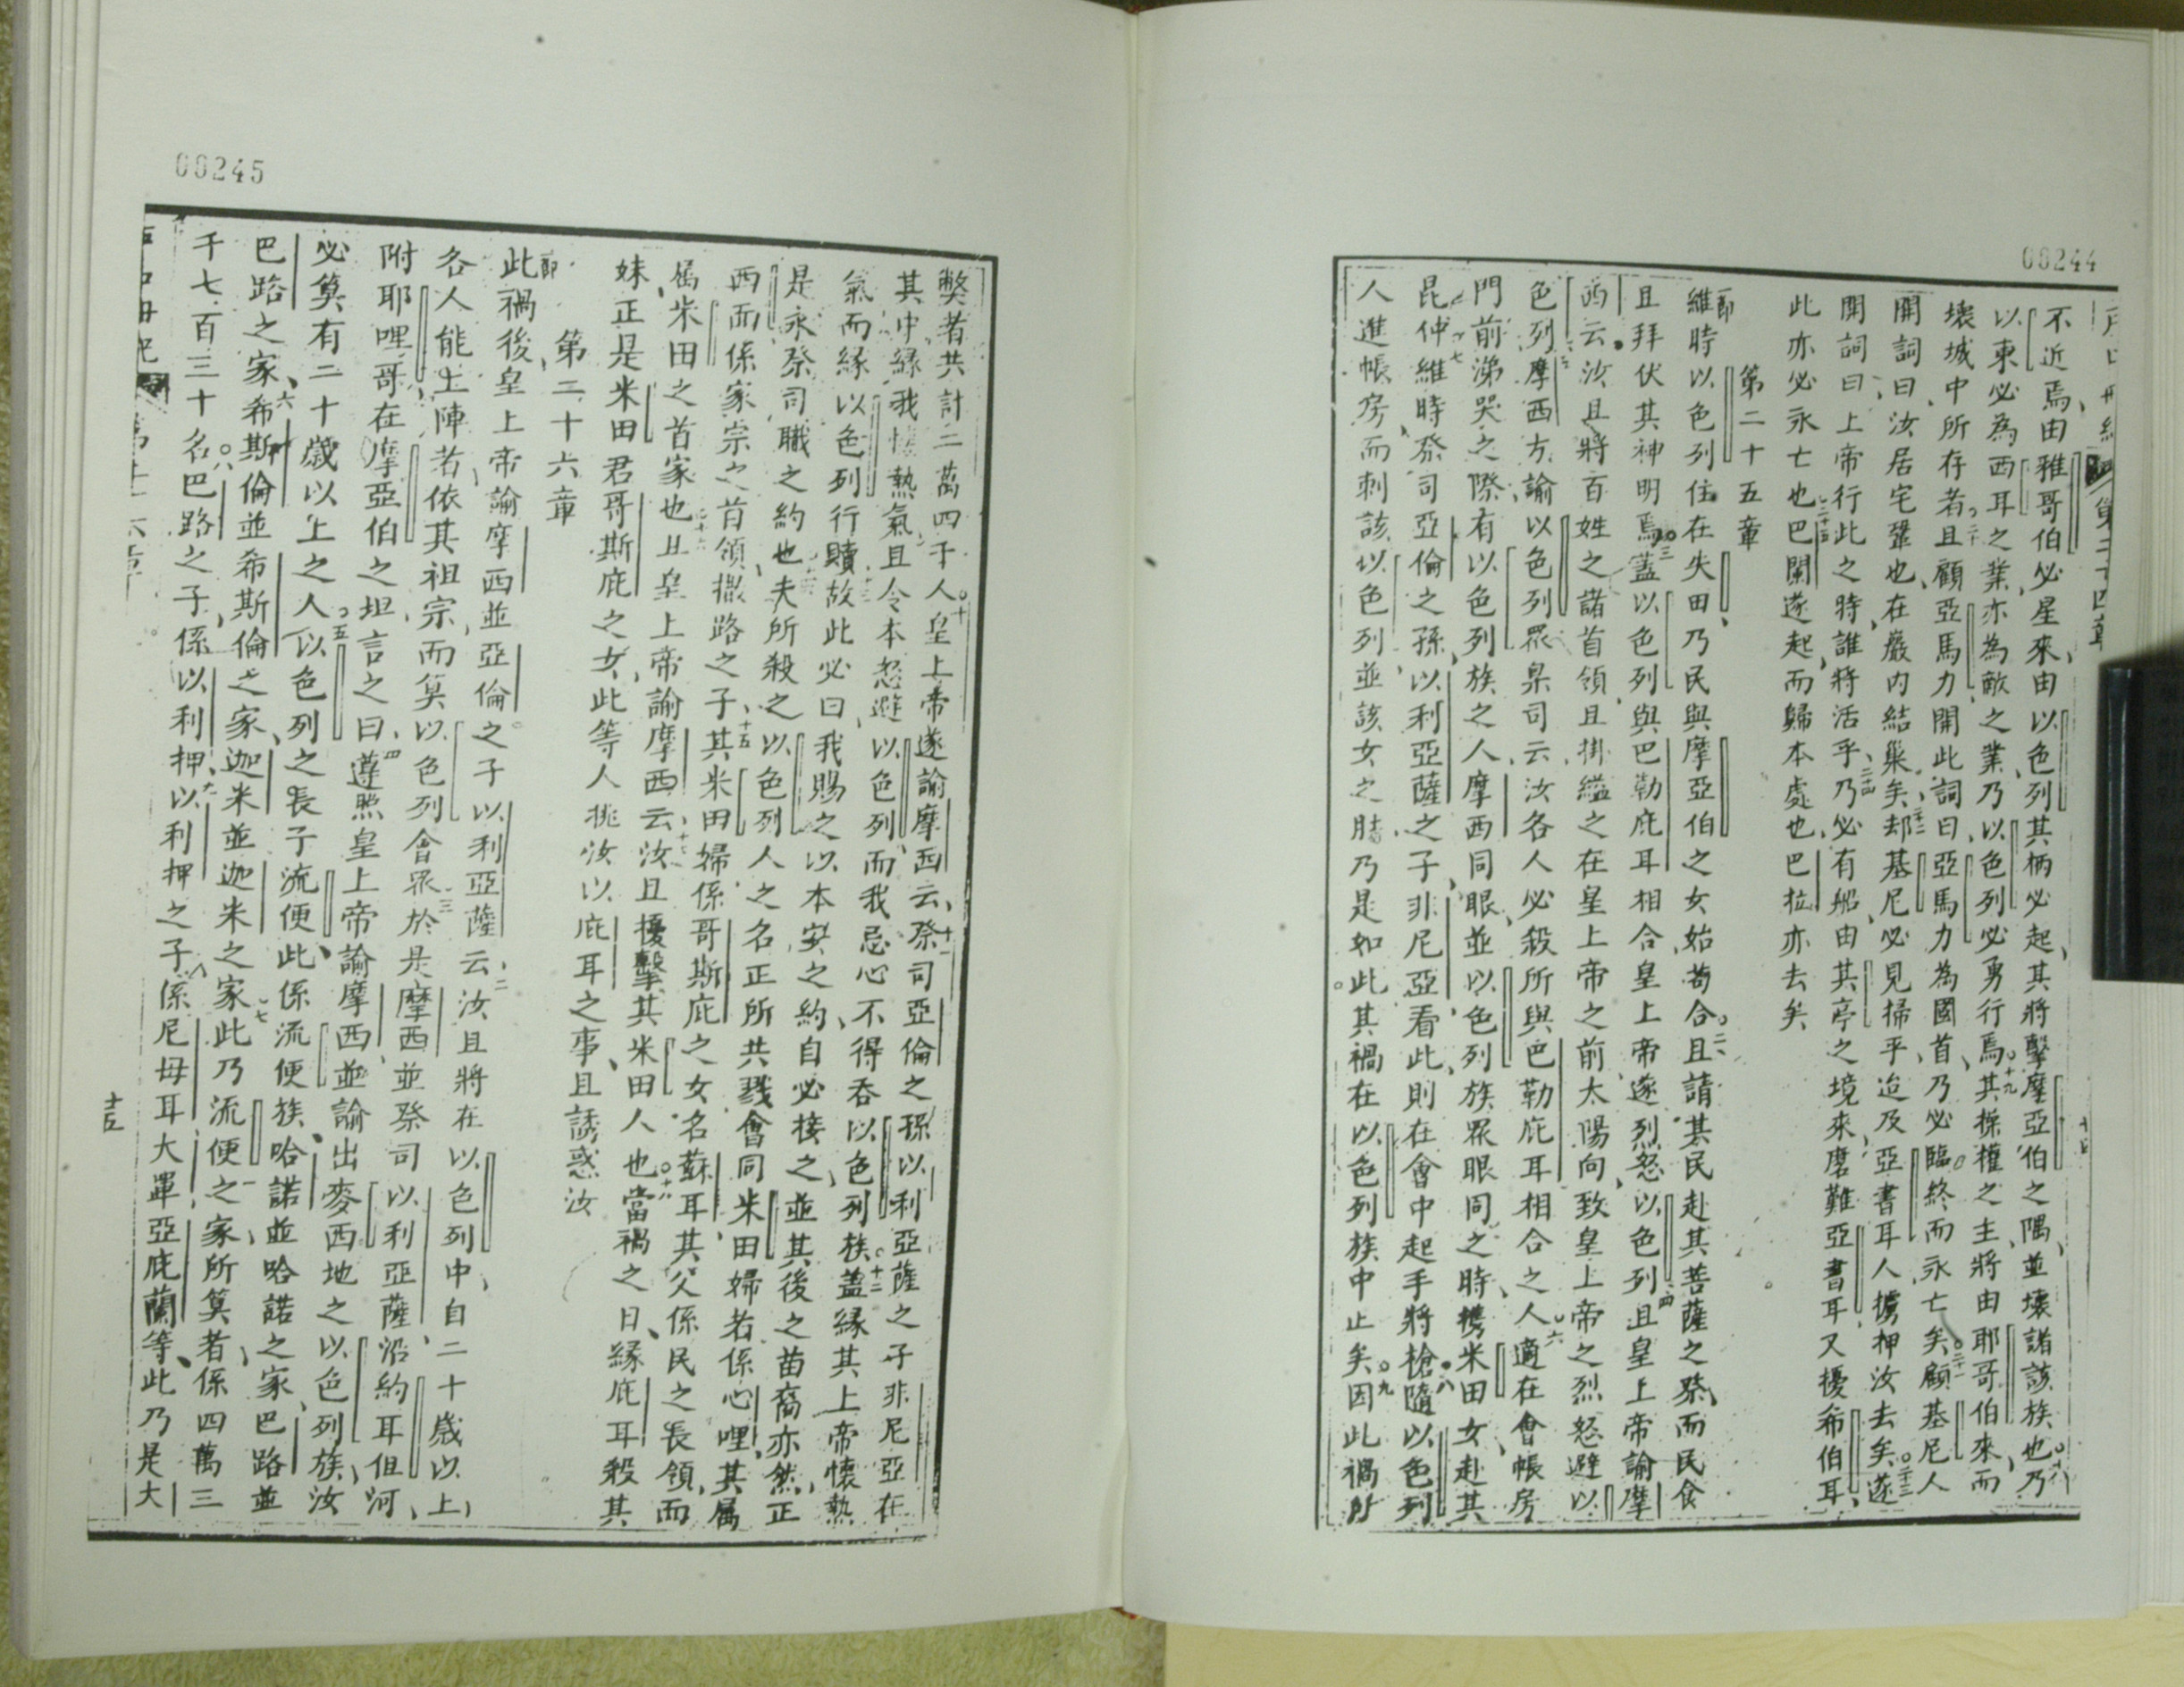 00244
不近焉由雅哥伯必星來由以色列其柄必起其將擊摩亞伯之隅並壞諸該族也十八乃
以東必為西耳之業亦為敵之業乃以色列必勇行焉十九其操權之主將由耶哥伯來而
壞城中所存者二十且顧亞馬力開此詞曰亞馬力為國首乃必臨終而永亡矣二十一顧基尼人
開詞曰汝居宅鞏也在巖內結巢矣二十二却基尼必見掃乎迨及亞書耳人擄押汝去矣二十三遂
開詞曰上帝行此之時誰將活乎二十四乃必有船由其亭之境來磨難亞書耳又擾希伯耳
此亦必永亡也二十五巴闌遂起而歸本處也巴拉亦去矣
第二十五章
一節維時以色列住在失田乃民與摩亞伯之女始苟合二且請其民赴其菩薩之祭而民食
且拜伏其神明焉三蓋以色列與巴勒庇耳相合皇上帝遂烈怒以色列四且皇上帝諭摩
西云汝且將百姓之諸首領且掛縊之在皇上帝之前太陽向致皇上帝之烈怒避以
色列五摩西方諭以色列眾臬司云汝各人必殺所與巴勒庇耳相合之人六適在會帳房
門前涕哭之際有以色列族之人摩西同眼並以色列族眾眼同之時攜米田女赴其
昆仲七維時祭司亞倫之孫以利亞薩之子非尼亞看此則在會中起手將槍八隨以色列
人進帳房而刺該以色列並該女之肚乃是如此其禍在以色列族中止矣九因此禍所
00245
斃者共計二萬四千人十皇上帝遂諭摩西云十一祭司亞倫之孫以利亞薩之子非尼亞在
其中緣我懷熱氣且令本怒避以色列而我忌心不得吞以色列族十二蓋緣其上帝懷熱
氣而緣以色列行贖故此必曰我賜之以本安之約十三自必接之並其後之苗裔亦然正
是永祭司職之約也十四夫所殺之以色列人之名正所共戮會同米田婦者係心哩其屬
西而係家宗之首領撒路之子十五其米田婦係哥斯庇之女名蘇耳其父係民之長領而
屬米田之首家也十六且皇上帝諭摩西云十七汝且擾擊其米田人也十八當禍之日緣庇耳殺其
妹正是米田君哥斯庇之女此等人挑汝以庇耳之事且誘惑汝
第二十六章
一節此禍後皇上帝諭摩西並亞倫之子以利亞薩云二汝且將在以色列中自二十歲以上
各人能上陣者依其祖宗而算以色列會眾三於是摩西並祭司以利亞薩沿約耳但河
附耶哩哥在摩亞伯之坦言之曰四遵照皇上帝諭摩西並諭出麥西地之以色列族汝
必算有二十歲以上之人五以色列之長子流便此係流便族哈諾並哈諾之家巴路並
巴路之家六希斯倫並希斯倫之家迦米並迦米之家七此乃流便之家所算者係四萬三
千七百三十名八巴路之子係以利押九以利押之子係尼母耳大單亞庇蘭等此乃是大